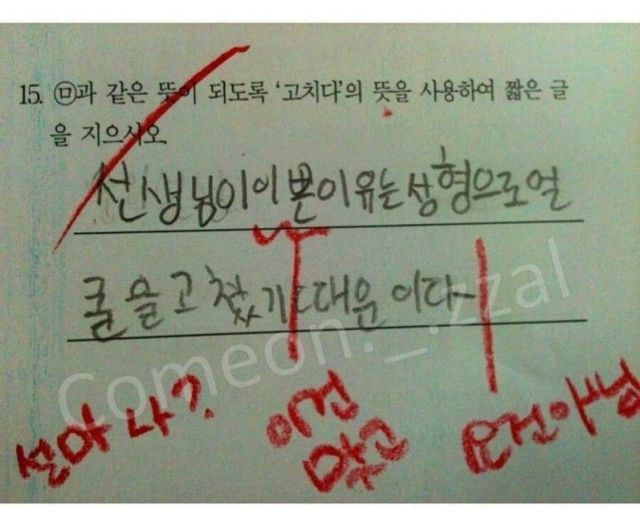 15. ㉤과 같은 뜻이 되도록 '고치다'의 뜻을 사용하여 짧은 글
을 지으시오.
선생님이 이쁜이유는 성형으로 얼
굴을 고쳤기 때문이다~
설마 나?
이건
맞고
요건아님
Comeon._.zzal